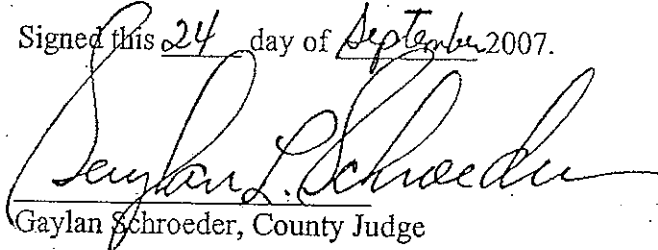 Signed this 24 day of September 2007.
Gaylan L. Schroeder
Gaylan Schroeder, County Judge